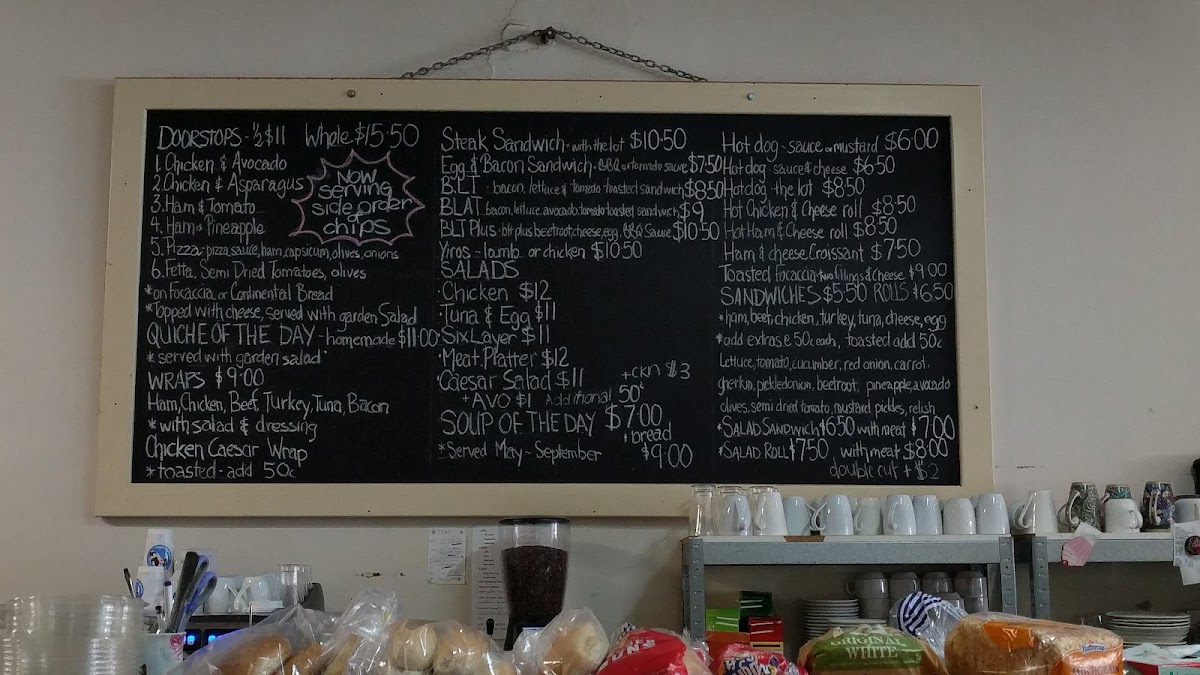 DOORSTOPS - ½ $11 Whole $15.50
1. Chicken & Avocado
2. Chicken & Asparagus
3. Ham & Tomato
4. Ham & Pineapple
5. Pizza - pizza sauce, ham, capsicum, olives, onions
6. Fetta, Semi Dried Tomatoes, olives
* on Focaccia or Continental Bread
* Topped with cheese, served with garden Salad
QUICHE OF THE DAY - homemade $11.00
* served with garden salad
WRAPS $9.00
Ham, Chicken, Beef, Turkey, Tuna, Bacon
* with salad & dressing
Chicken Caesar Wrap
* toasted - add 50c
NOW
serving
side order
of
chips
Steak Sandwich - with the lot $10.50
Egg & Bacon Sandwich - BBQ or tomato sauce $7.50
BLT - bacon, lettuce & tomato toasted sandwich $8.50
BLAT bacon, lettuce, avocado, tomato toasted sandwich $9
BLT Plus - blt plus beetroot, cheese, egg, BBQ Sauce $10.50
Yiros - lamb or chicken $10.50
SALADS
· Chicken $12
· Tuna & Egg $11
· Six Layer $11
· Meat Platter $12
· Caesar Salad $11 + ckn $3
+ AVO $1 Additional 50c
SOUP OF THE DAY $7.00
+ bread
* Served May - September $9.00
Hot dog - sauce or mustard $6.00
Hot dog - sauce & cheese $6.50
Hot dog - the lot $8.50
Hot Chicken & Cheese roll $8.50
Hot Ham & Cheese roll $8.50
Ham & cheese Croissant $7.50
Toasted Focaccia - two fillings & cheese $9.00
SANDWICHES $5.50 ROLLS $6.50
* ham, beef, chicken, turkey, tuna, cheese, egg
* add extras @ 50c each, toasted add 50c
Lettuce, tomato, cucumber, red onion, carrot,
gherkin, pickled onion, beetroot, pineapple, avocado
olives, semi dried tomato, mustard pickles, relish
* SALAD SANDWICH $6.50 with meat $7.00
* SALAD ROLL $7.50 with meat $8.00
double cut + $2
ORIGINAL
WHITE
Buttercup